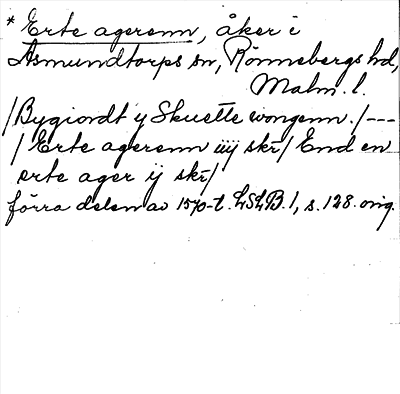 * Erte agerenn, åker i
Asmundtorps sn, Rönnebergs hd,
Malm. l.
/Bygiordt y Skuette wongenn./---
/ Erte agerenn iiij skr/ End en
erte ager ij skr/
förra delen av 1570-t. LSLB. 1, s. 128. orig.